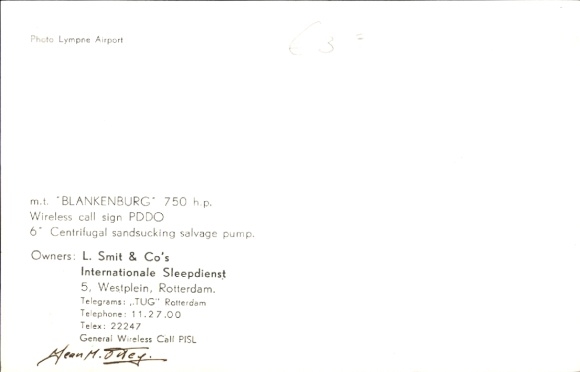 Photo Lympne Airport
€ 3 =
m.t. "BLANKENBURG" 750 h.p.
Wireless call sign PDDO
6" Centrifugal sandsucking salvage pump.
Owners: L. Smit & Co's
Internationale Sleepdienst
5, Westplein, Rotterdam.
Telegrams: „TUG" Rotterdam
Telephone: 11.27.00
Telex: 22247
General Wireless Call PISL